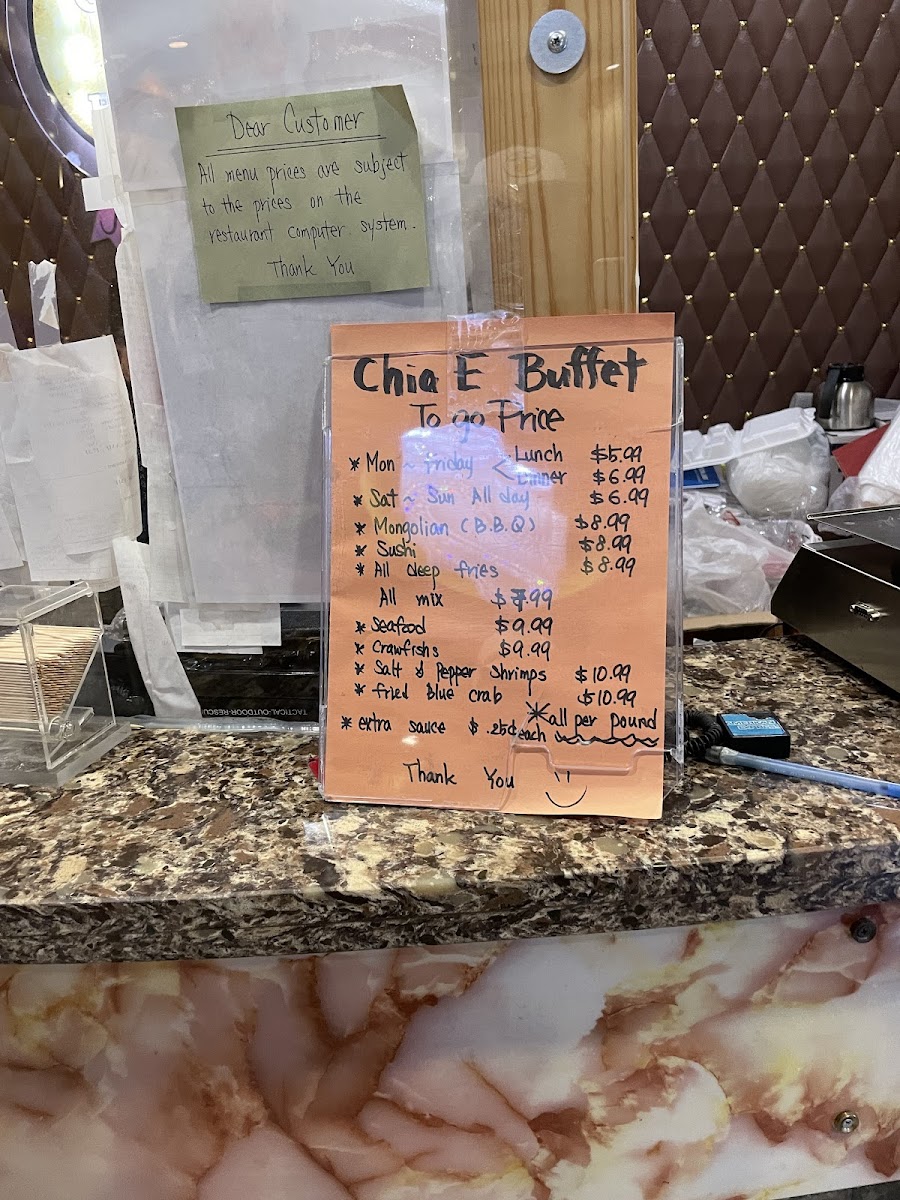 Dear Customer
All menu prices are subject
to the prices on the
restaurant computer system.
Thank You
Chia E Buffet
To go Price
* Mon ~ Friday < Lunch $5.99
Dinner $6.99
* Sat ~ Sun All day $6.99
* Mongolian (B.B.Q) $8.99
* Sushi $8.99
* All deep fries $8.99
All mix $7.99
* Seafood $9.99
* Crawfishs $9.99
* Salt & Pepper Shrimps $10.99
* fried Blue crab $10.99
* extra sauce $ .25¢ each
*all per pound
Thank You
TACTICAL-OUTDOOR-RESCU